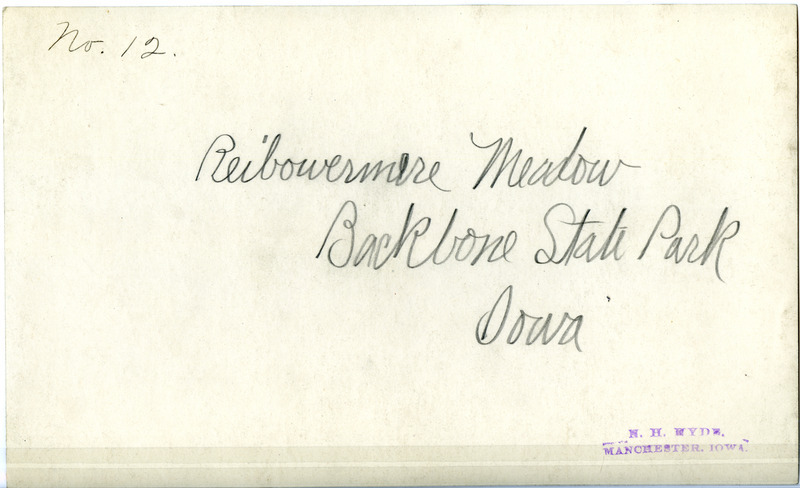 No. 12.
Reibowermere Meadow
Backbone State Park
Iowa
N. H. HYDE,
MANCHESTER, IOWA.